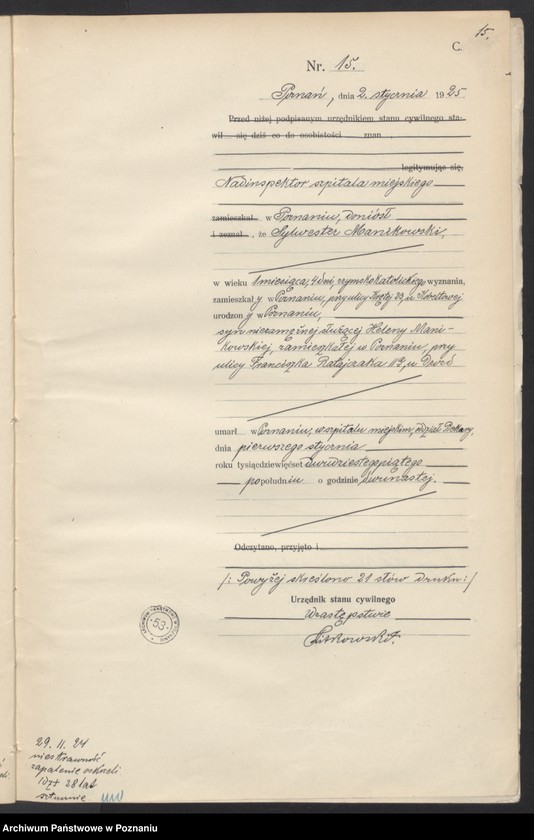 15.
C.
Nr. 15.
Poznań, dnia 2. stycznia 1925
Przed niżej podpisanym urzędnikiem stanu cywilnego sta-
wił się dziś co do osobistości znan
legitymując się,
Nadinspektor szpitala miejskiego
zamieszkał w Poznaniu, doniósł
i zeznał, że Sylwester Mańkowski,
w wieku 1 miesiąca, 4 dni, rzymskokatolickiego wyznania,
zamieszkały w Poznaniu, przy ulicy 23, u
urodzony w Poznaniu,
syn niezamężnej służącej Heleny Mań-
kowskiej, zamieszkałej w Poznaniu, przy
ulicy Franciszka Ratajczaka 119, u
umarł w Poznaniu, w szpitalu miejskim, 
dnia pierwszego stycznia
roku tysiącdziewięćset dwudziestegopiątego
popołudniu o godzinie dwunastej.
Odczytano, przyjęto i
/: Powyżej skreślono 21 słów druku :/
Urzędnik stanu cywilnego
W zastępstwie
ARCHIWUM PAŃSTWOWE W POZNANIU
53
29. 11. 24
niestrawność
zapalenie oskrzeli
28 lat
Archiwum Państwowe w Poznaniu